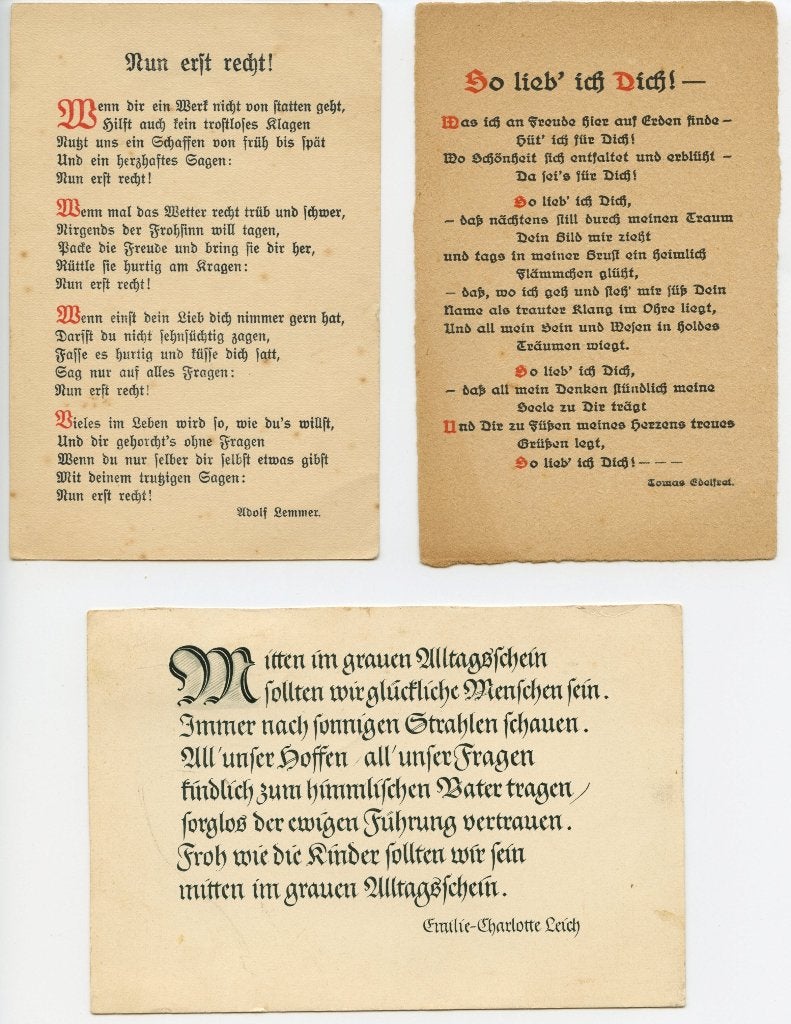 Nun erst recht!
Wenn dir ein Werk nicht von statten geht,
Hilft auch kein trostloses Klagen
Nutzt uns ein Schaffen von früh bis spät
Und ein herzhaftes Sagen:
Nun erst recht!
Wenn mal das Wetter recht trüb und schwer,
Nirgends der Frohsinn will tagen,
Packe die Freude und bring sie dir her,
Rüttle sie hurtig am Kragen:
Nun erst recht!
Wenn einst dein Lieb dich nimmer gern hat,
Darfst du nicht sehnsüchtig zagen,
Fasse es hurtig und küsse dich satt,
Sag nur auf alles Fragen:
Nun erst recht!
Vieles im Leben wird so, wie du's willst,
Und dir gehorcht's ohne Fragen
Wenn du nur selber dir selbst etwas gibst
Mit deinem trutzigen Sagen:
Nun erst recht!
Adolf Lemmer.
So lieb' ich Dich! —
Was ich an Freude hier auf Erden finde –
Hüt' ich für Dich!
Wo Schönheit sich entfaltet und erblüht –
Da sei's für Dich!
So lieb' ich Dich,
– daß nächtens still durch meinen Traum
Dein Bild mir zieht
und tags in meiner Brust ein heimlich
Flämmchen glüht,
– daß, wo ich geh und steh' mir süß Dein
Name als trauter Klang im Ohre liegt,
Und all mein Sein und Wesen in holdes
Träumen wiegt.
So lieb' ich Dich,
– daß all mein Denken stündlich meine
Seele zu Dir trägt
Und Dir zu Füßen meines Herzens treues
Grüßen legt,
So lieb' ich Dich! – – –
Tomas Edelfrei.
Mitten im grauen Alltagsschein
sollten wir glückliche Menschen sein.
Immer nach sonnigen Strahlen schauen.
All' unser Hoffen / all' unser Fragen
kindlich zum himmlischen Vater tragen /
sorglos der ewigen Führung vertrauen.
Froh wie die Kinder sollten wir sein
mitten im grauen Alltagsschein.
Emilie-Charlotte Leich